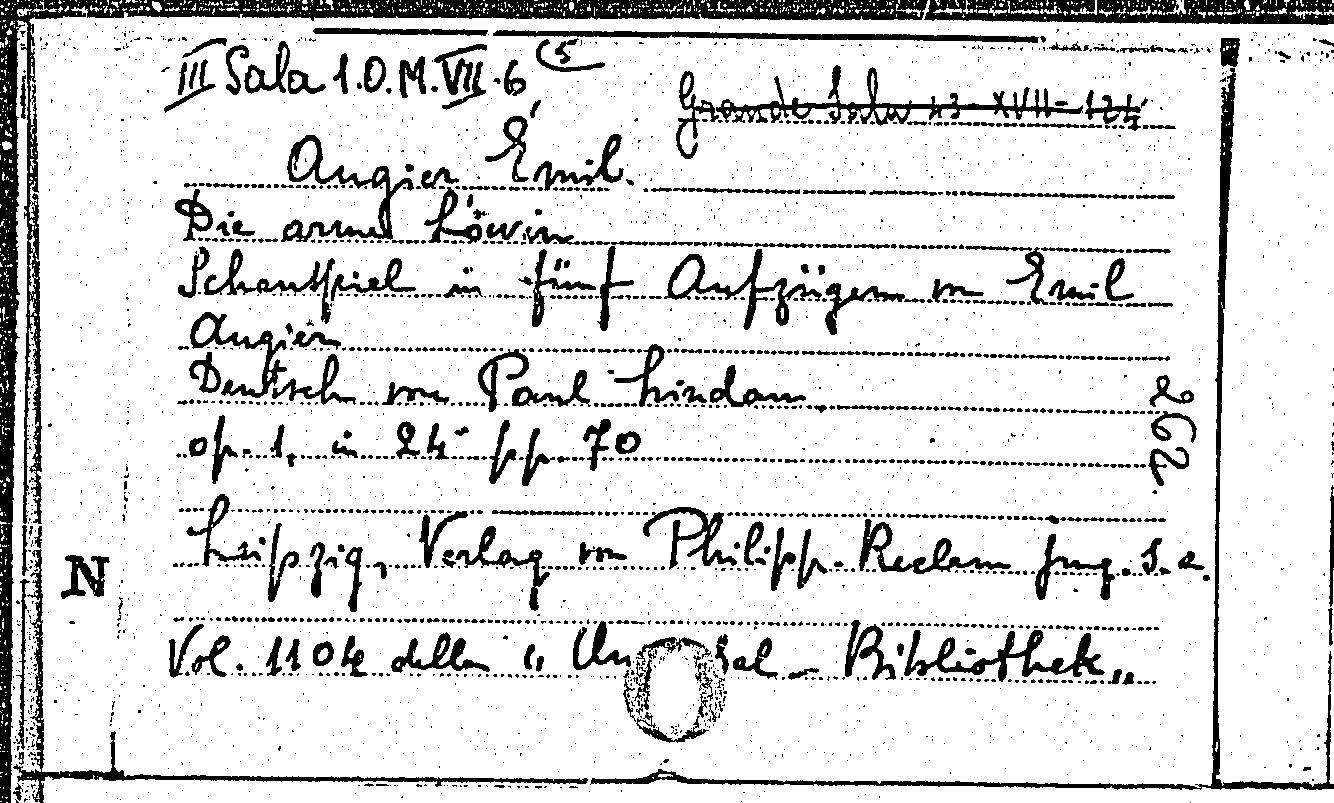 III Sala 1.O.M.VII.6 (5
Grande Sala 23-XVII-124
Augier Émil.
Die arme Löwin
Schauspiel in fünf Aufzügen von Emil
Augier
Deutsch von Paul Lindau
op. 1, in 24° pp. 70
262
Leipzig, Verlag von Philipp. Reclam jung. s.a.
N
Vol. 1104 della „ Un sal - Bibliothek „